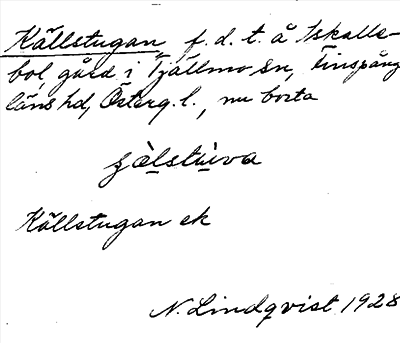 Källstugan, f. d. t. å Iskalls-
bol, gård i Tjällmo sn, Finspång
läns hd, Österg. l., nu borta
Källstugan ek
N. Lindqvist 1928